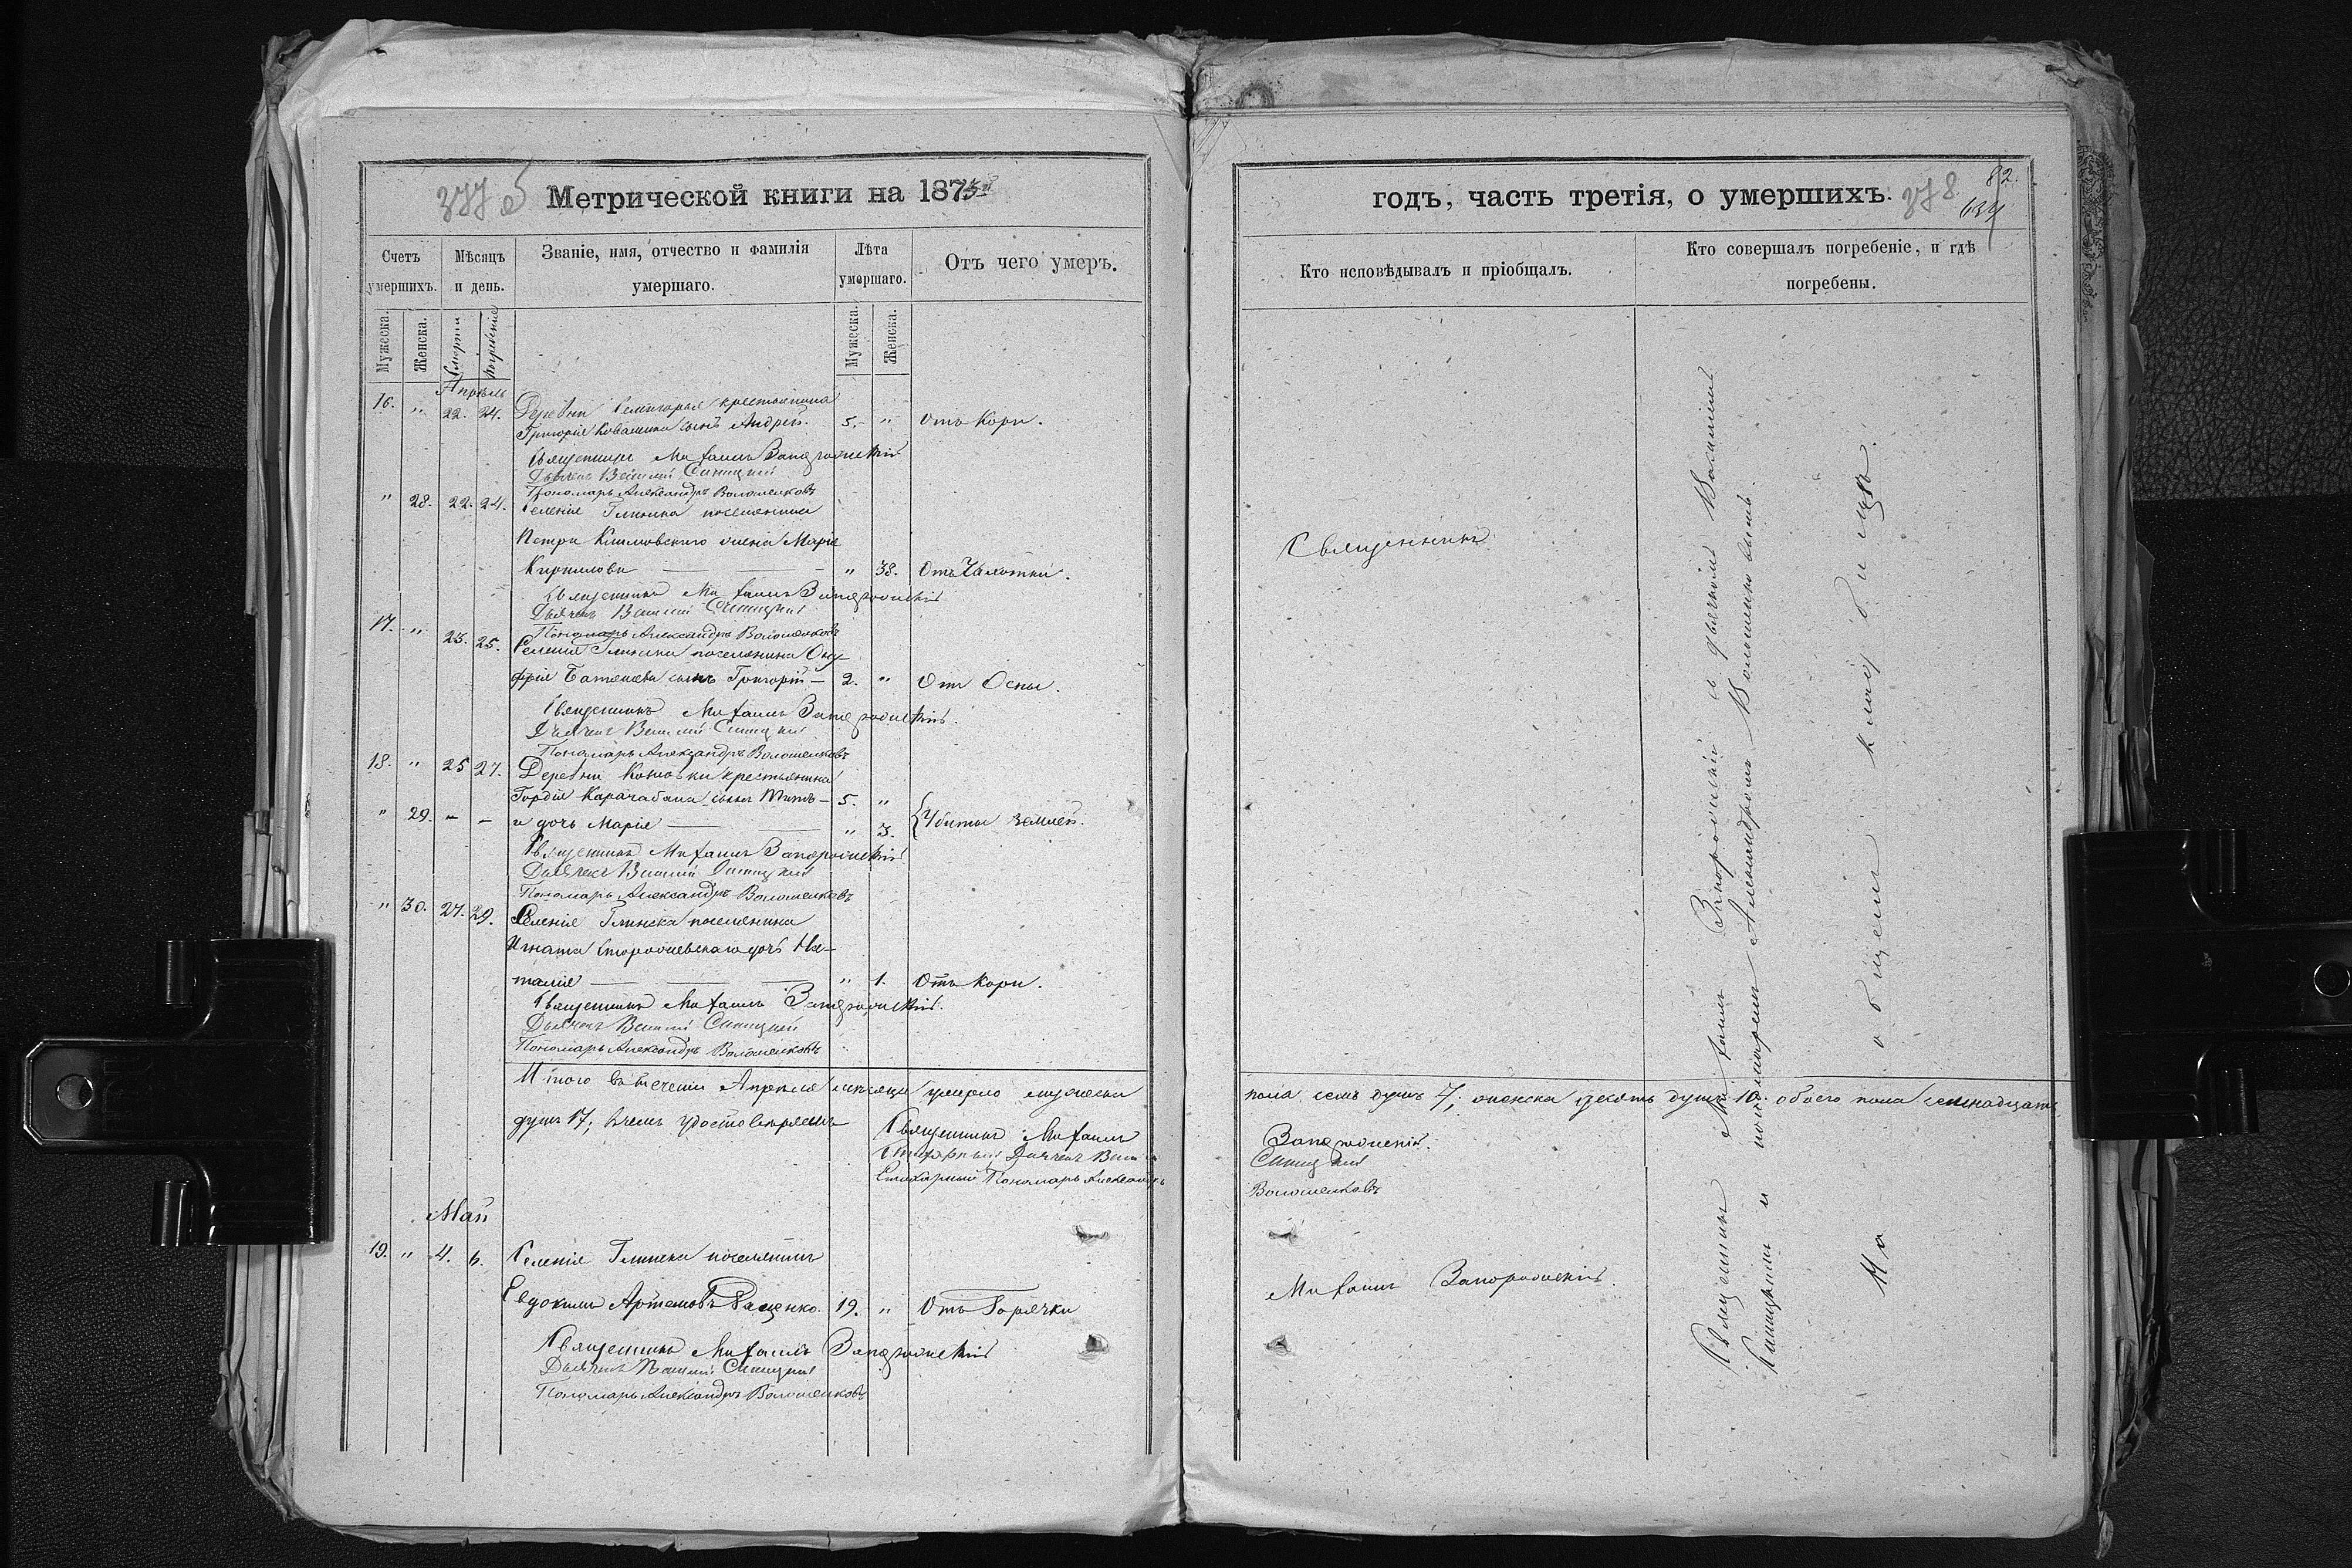 377 об
Метрической книги на 1875й
Счетъ умершихъ.
Мѣсяцъ и день.
Званіе, имя, отчество и фамилія умершаго.
Лѣта умершаго.
Отъ чего умеръ.
Мужеска.
Женска.
Смерти
погребенія
Мужеска.
Женска.
Апрѣль
16. " 22. 24. Деревни Семигорья крестьянина
Григорія Коваленка сынъ Андрей. 5.- " Отъ Кори.
Священникъ Михаилъ Запорожскій
Дьячекъ Василій Синицкій
Пономарь Александръ Волошенковъ
" 28. 22. 24. Селенія Глинска поселянина
Петра Климовскаго жена Марія
Кирилова " 38. Отъ Чахотки.
Священникъ Михаилъ Запорожскій
Дьячекъ Василій Синицкій
Пономарь Александръ Волошенковъ
17. " 23. 25. Селенія Глинска поселянина Ону-
фрія сынъ Григорій 2. " Отъ Оспы.
Священникъ Михаилъ Запорожскій.
Дьячекъ Василій Синицкій
Пономарь Александръ Волошенковъ
18. " 25 27. Деревни крестьянина
Гордія Карачабана сынъ Титъ 5. "
" 29. - - и дочь Марія " 3. Убиты землей.
Священникъ Михаилъ Запорожскій
Дьячекъ Василій Синицкій
Пономарь Александръ Волошенковъ
" 30. 27. 29. Селенія Глинска поселянина
Игната дочь На-
талія " 1. Отъ Кори.
Священникъ Михаилъ Запорожскій.
Дьячекъ Василій Синицкій
Пономарь Александръ Волошенковъ
Итого въ теченіи Апрѣля мѣсяца умерло мужеска
душъ 17; въ чемъ удостовѣряемъ
Священникъ Михаилъ
Стихарный Дьячекъ Василій
Стихарный Пономарь Александръ
Май
19. " 4. 6. Селенія Глинска поселянинъ
Евдокимъ Артемовъ 19. " Отъ Горячки
Священникъ Михаилъ Запорожскій
Дьячекъ Василій Синицкій
Пономарь Александръ Волошенковъ
годъ, часть третія, о умершихъ.
378
82.
634
Кто исповѣдывалъ и пріобщалъ.
Кто совершалъ погребеніе, и гдѣ погребены.
Священникъ
пола семь душъ 7; женска десять душъ 10. обоего пола семнадцать
Запорожскій.
Синицкій
Волошенковъ
Михаилъ Запорожскій.
Священникъ Михаилъ Запорожскій съ дьячкомъ Василіемъ
Синицкимъ и пономаремъ Александромъ Волошенковымъ.
На общемъ кладбищѣ.